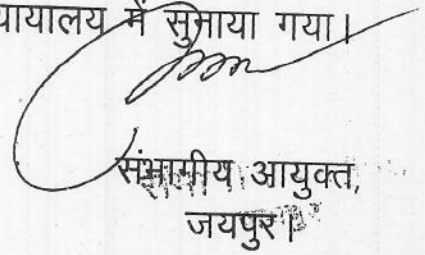 यायालय में सुनाया गया।
संभागीय आयुक्त,
जयपुर।